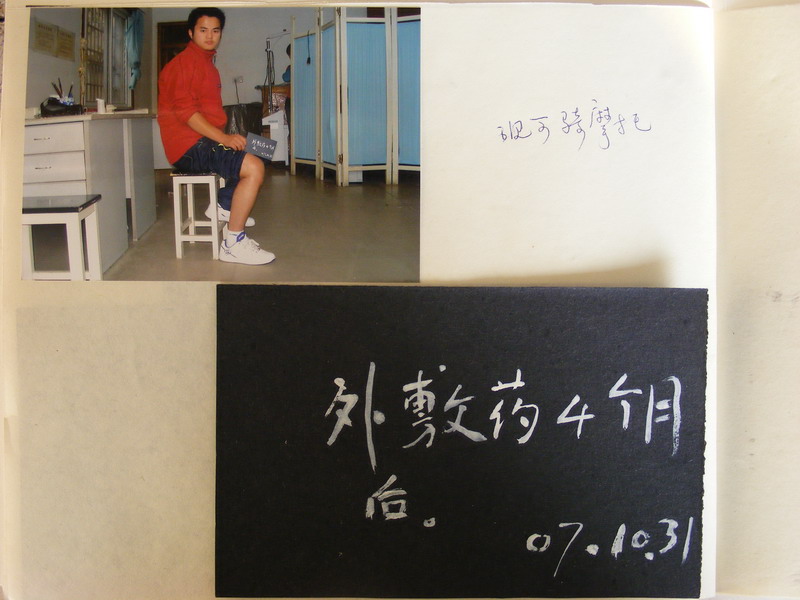 现可骑摩托
外敷药4个月
后。
07.10.31